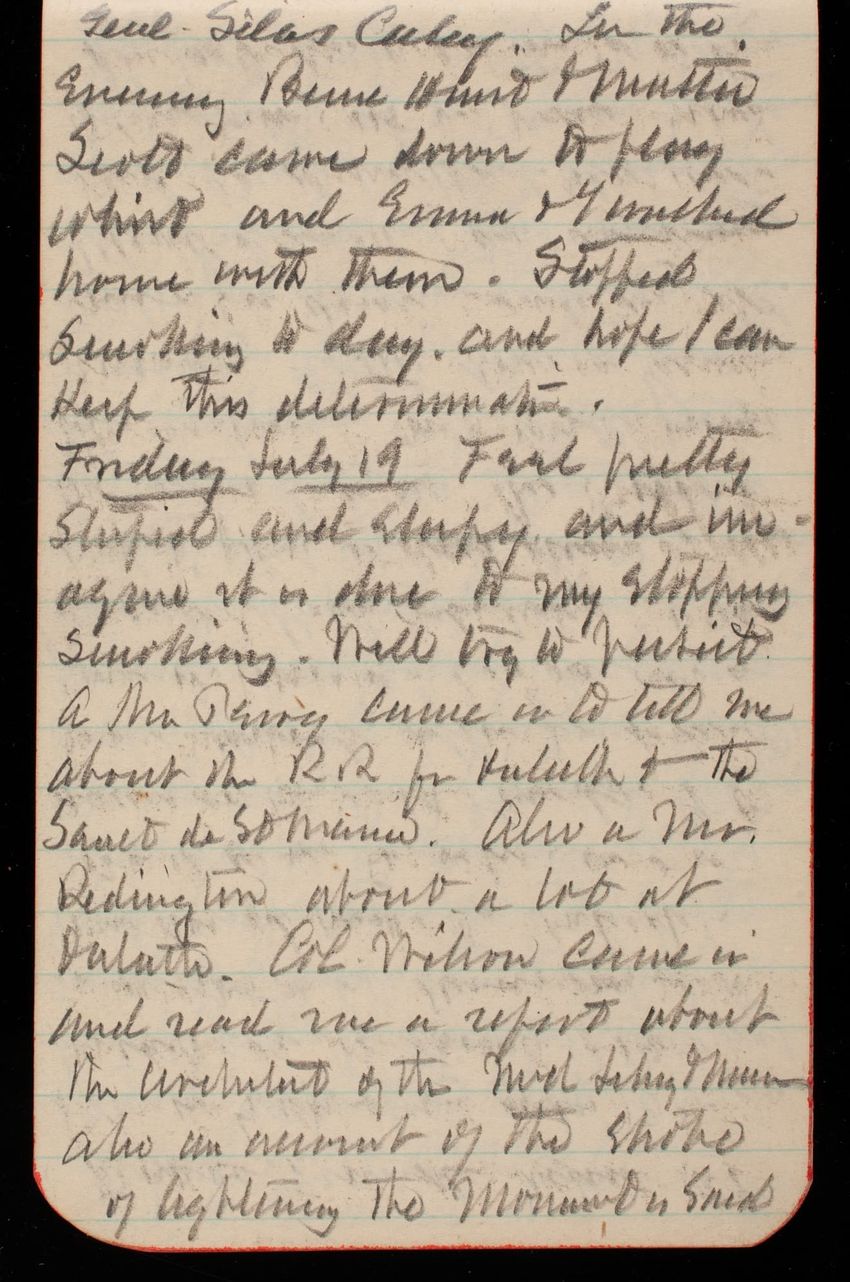 Genl. Silas Casey. In the
Evening Bessie Hunt & Mattie
Scott came down to play
whist and Emma & I walked
home with them. Stopped
Smoking to day. and hope I can
Keep this determination.
Friday July 19 Feel pretty
Stupid and sleepy. and im-
agine it is due to my stopping
smoking. Will try to persist.
A Mr came in to tell me
about the RR for Duluth & the
Sault de St Marie. Also a Mr.
Redington about a lot at
Duluth. Col Wilson came in
and read me a report about
the architect of the Med
also an account of the stroke
of lightening the Monument is said